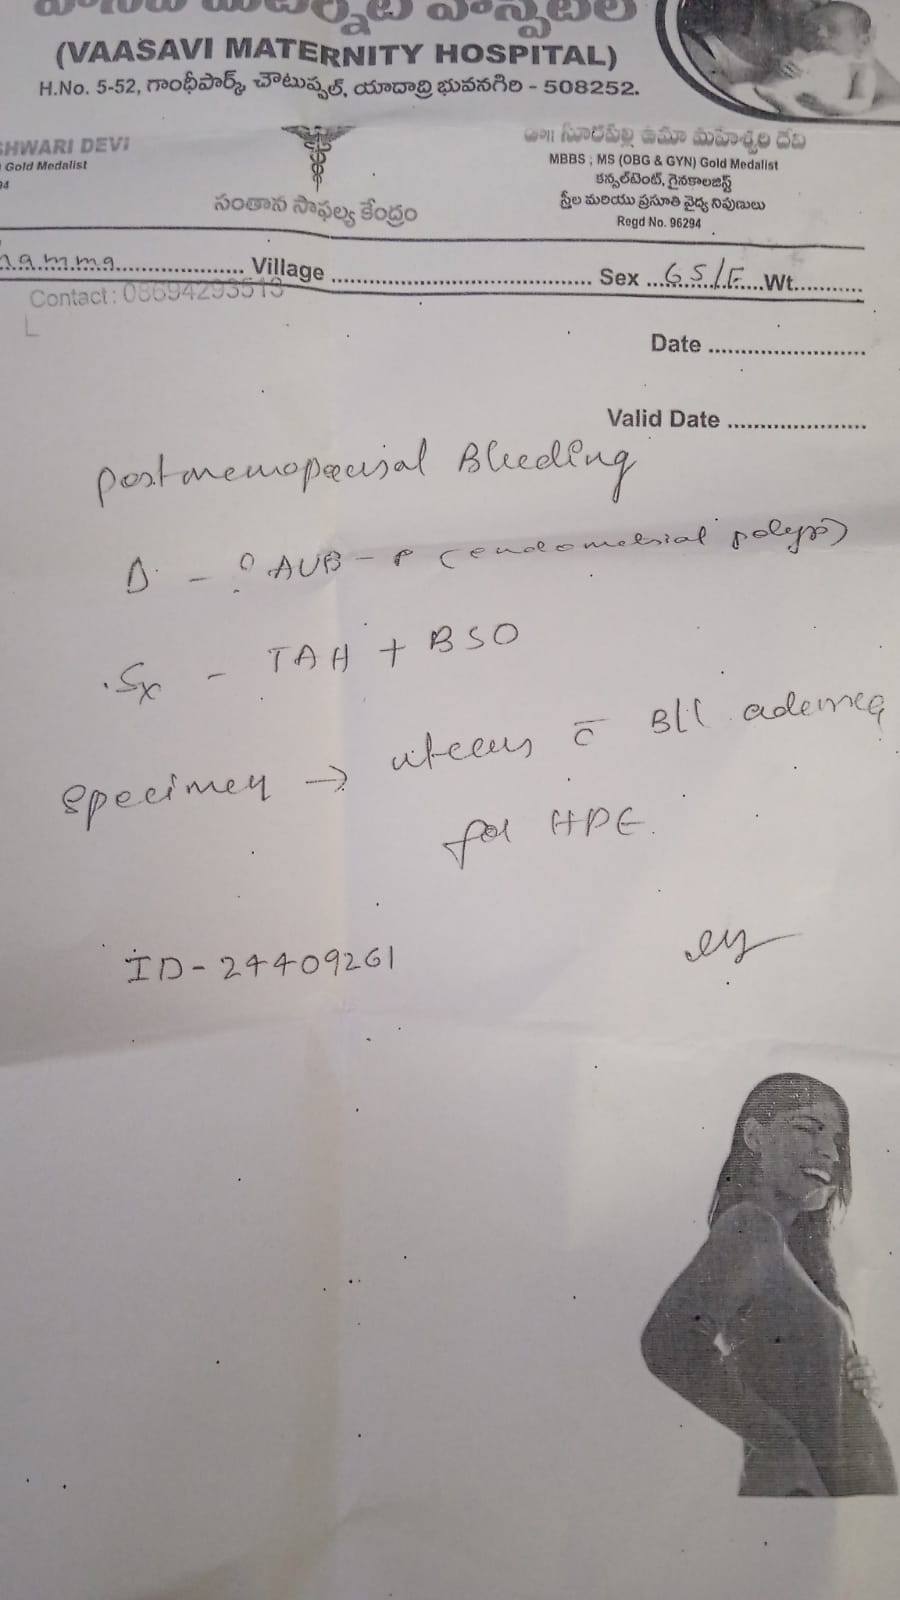 వాసవి మెటర్నిటి హాస్పిటల్
(VAASAVI MATERNITY HOSPITAL)
H.No. 5-52, గాంధీపార్క్, చౌటుప్పల్, యాదాద్రి భువనగిరి - 508252.
SHWARI DEVI
Gold Medalist
94
సంతాన సాఫల్య కేంద్రం
డా॥ సూరపల్లి ఉమా మహేశ్వరి దేవి
MBBS ; MS (OBG & GYN) Gold Medalist
కన్సల్టెంట్, గైనకాలజిస్ట్
స్త్రీల మరియు ప్రసూతి వైద్య నిపుణులు
Regd No. 96294
hamma Village Sex 65/F Wt.
Contact : 08694293513
Date
Valid Date
Postmenopausal Bleeding
Δ - ? AUB - P (endometrial polyp)
Sx - TAH + BSO
Specimen → uterus c̄ B/L adenexa
for HPE.
ID - 24409261